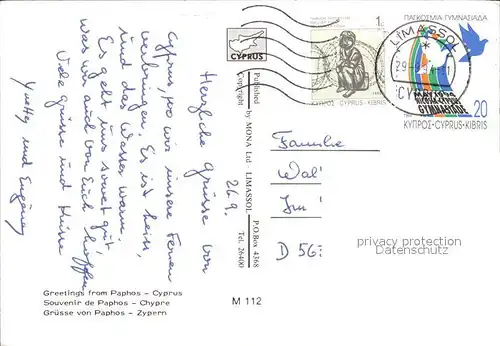 26.9.
Herzliche Grüsse von
Cyprus, wo wir unsere Ferien
verbringen. Es ist heiss,
und das Wasser warm.
Es geht uns soweit gut
was wir auch von Euch hoffen
Viele Grüsse und Küsse
Jutta und
Greetings from Paphos - Cyprus
Souvenir de Paphos - Chypre
Grüsse von Paphos - Zypern
M 112
CYPRUS
Published
Copyright by MONA Ltd - LIMASSOL
P.O.Box 4368
Tel. 26400
1c
ΚΥΠΡΟΣ CYPRUS-KIBRIS
ΠΑΓΚΟΣΜΙΑ ΓΥΜΝΑΣΙΑΔΑ
LIMASSOL
CY
GYMNASIADE
20
ΚΥΠΡΟΣ-CYPRUS-KIBRIS
Familie
Wal
Im
D 56
privacy protection
Datenschutz